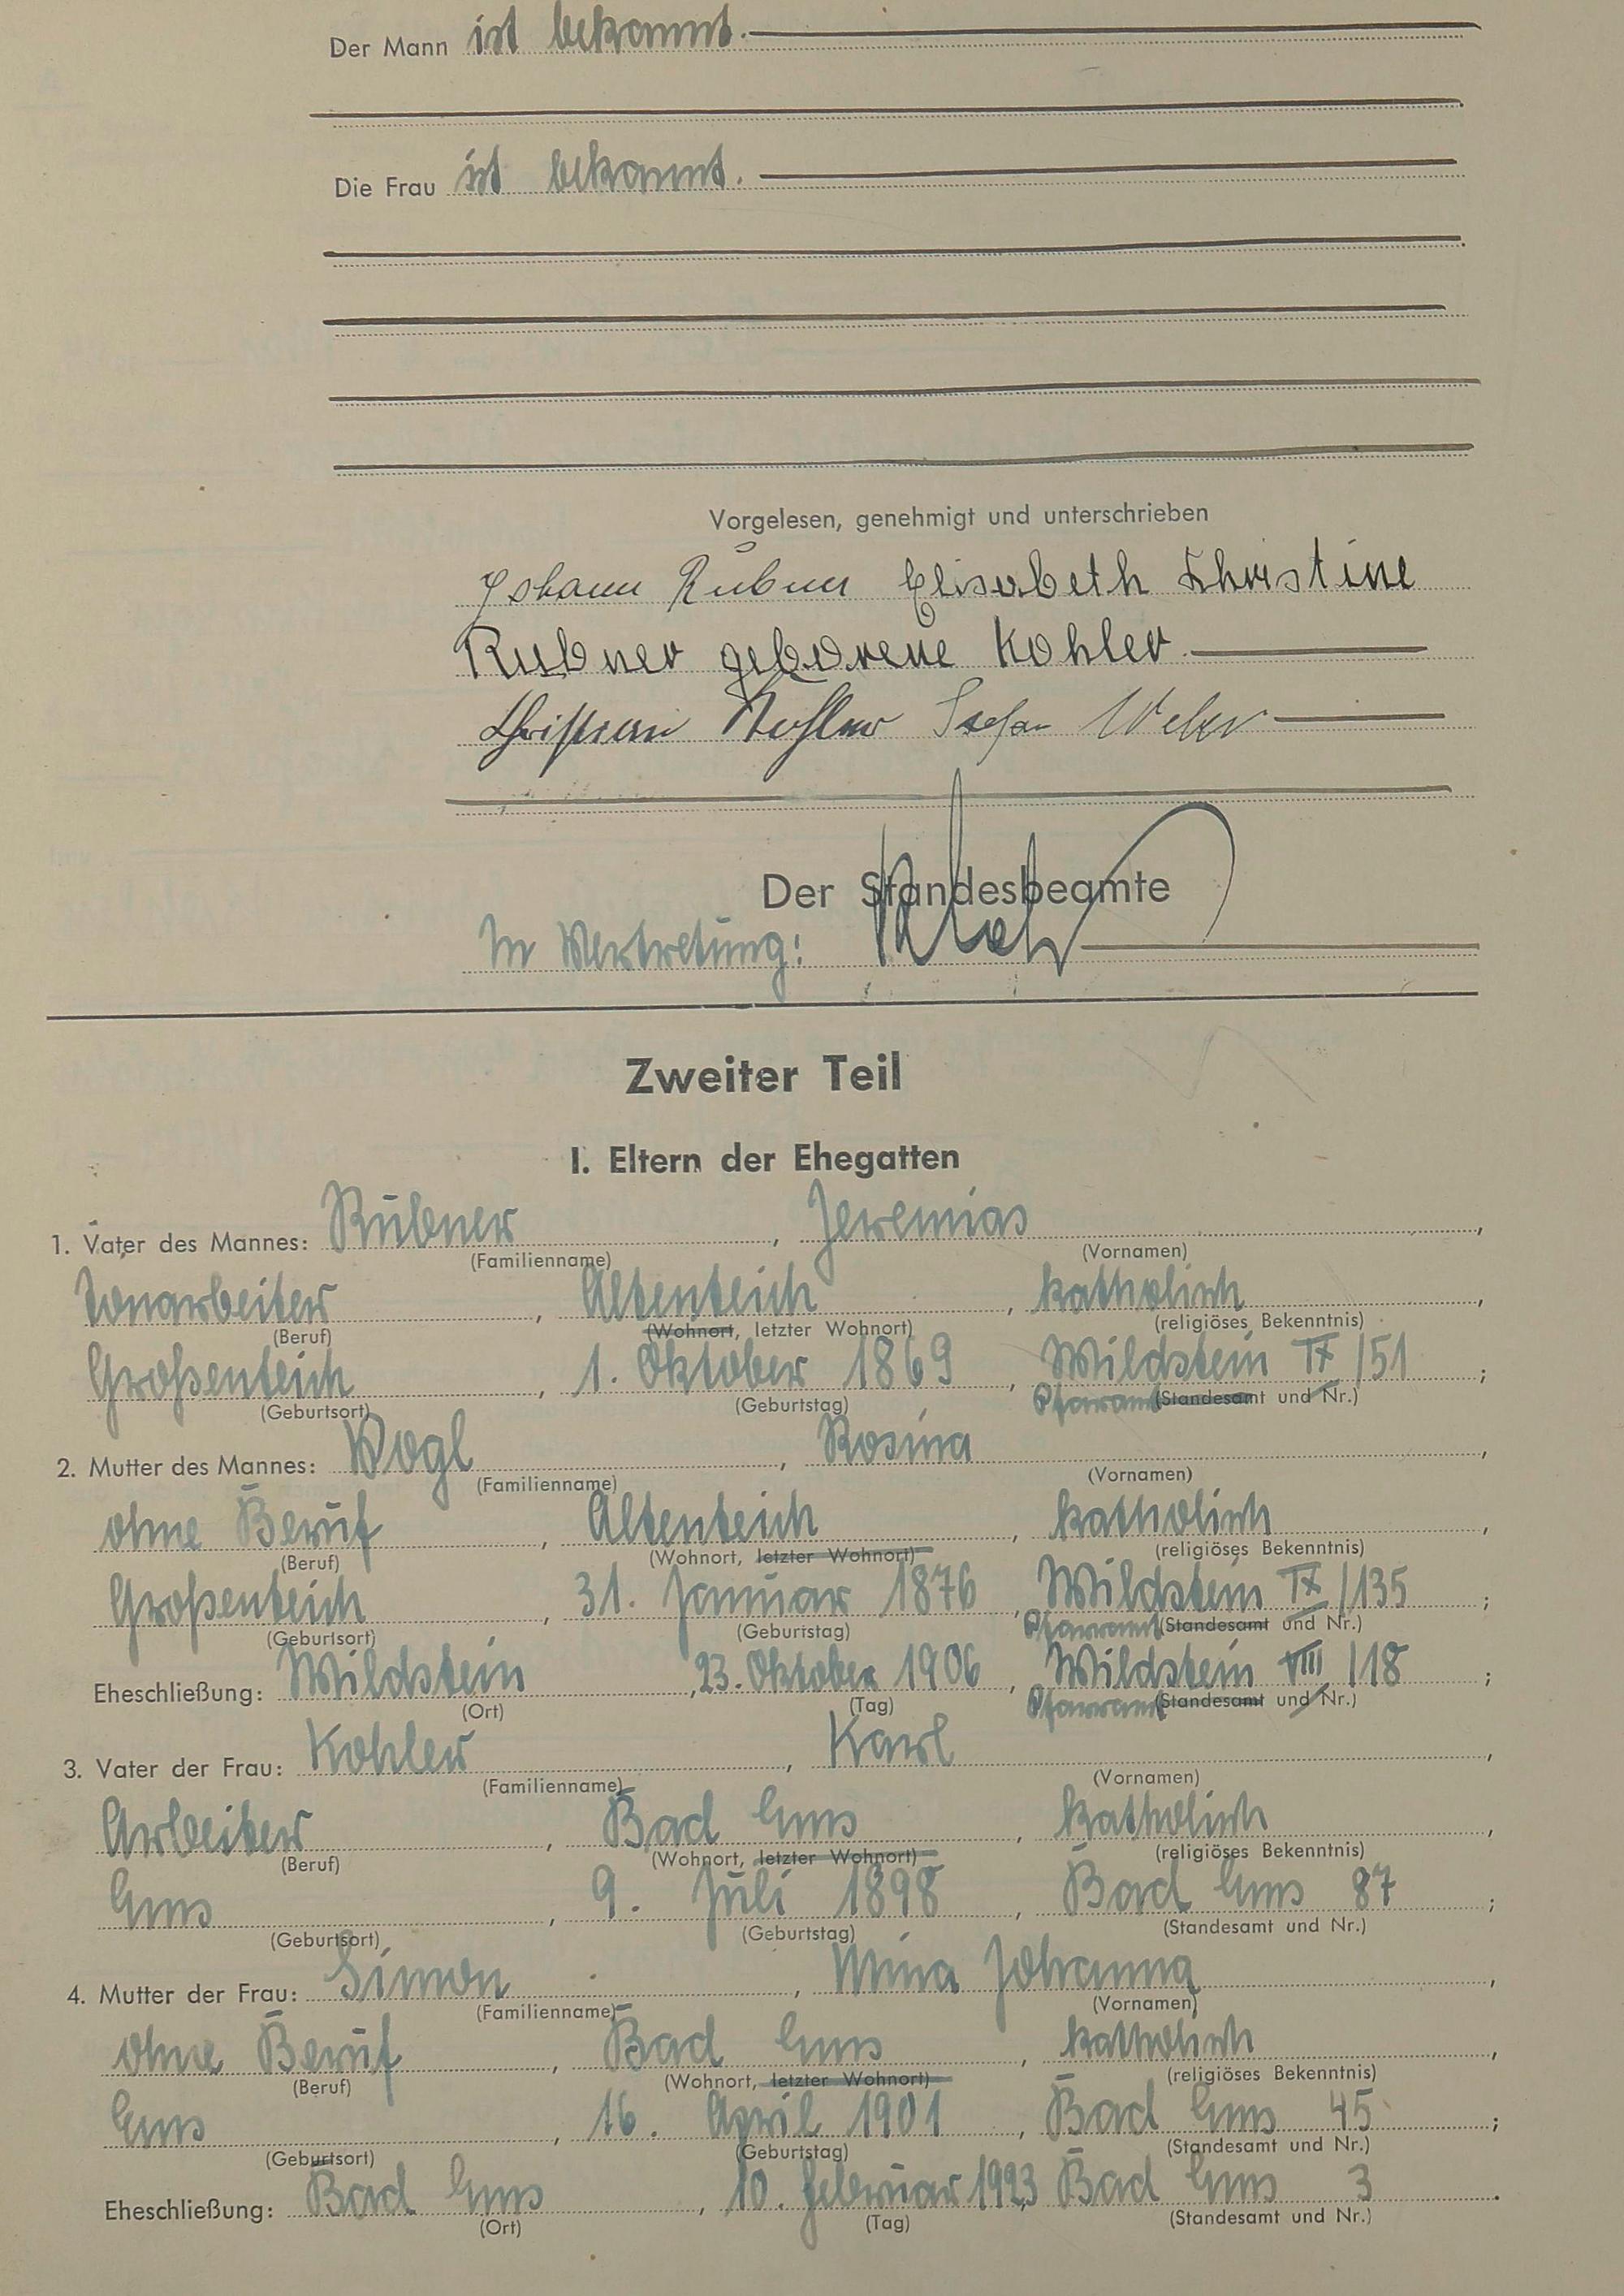 Der Mann ist bekannt.
Die Frau ist bekannt.
Vorgelesen, genehmigt und unterschrieben
Johann Rubner Elisabeth Christine
Rubner geborene Kohler
Christian Kohler Stefan Weber
Der Standesbeamte
In Vertretung:
Zweiter Teil
I. Eltern der Ehegatten
1. Vater des Mannes: Rubner, Jeremias,
(Familienname) (Vornamen)
Tonarbeiter, Altenteich, katholisch,
(Beruf) (Wohnort, letzter Wohnort) (religiöses Bekenntnis)
Großenteich, 1. Oktober 1869, Wildstein IX/51;
(Geburtsort) (Geburtstag) Pfarramt (Standesamt und Nr.)
2. Mutter des Mannes: Vogl, Rosina,
(Familienname) (Vornamen)
ohne Beruf, Altenteich, katholisch,
(Beruf) (Wohnort, letzter Wohnort) (religiöses Bekenntnis)
Großenteich, 31. Januar 1876, Wildstein IX/135;
(Geburtsort) (Geburtstag) Pfarramt (Standesamt und Nr.)
Eheschließung: Wildstein, 23. Oktober 1906, Wildstein VIII/18;
(Ort) (Tag) Pfarramt (Standesamt und Nr.)
3. Vater der Frau: Kohler, Karl,
(Familienname) (Vornamen)
Arbeiter, Bad Ems, katholisch,
(Beruf) (Wohnort, letzter Wohnort) (religiöses Bekenntnis)
Ems, 9. Juli 1898, Bad Ems 87;
(Geburtsort) (Geburtstag) (Standesamt und Nr.)
4. Mutter der Frau: Simon, Mina Johanna,
(Familienname) (Vornamen)
ohne Beruf, Bad Ems, katholisch,
(Beruf) (Wohnort, letzter Wohnort) (religiöses Bekenntnis)
Ems, 16. April 1901, Bad Ems 45;
(Geburtsort) (Geburtstag) (Standesamt und Nr.)
Eheschließung: Bad Ems, 10. Februar 1923, Bad Ems 3.
(Ort) (Tag) (Standesamt und Nr.)